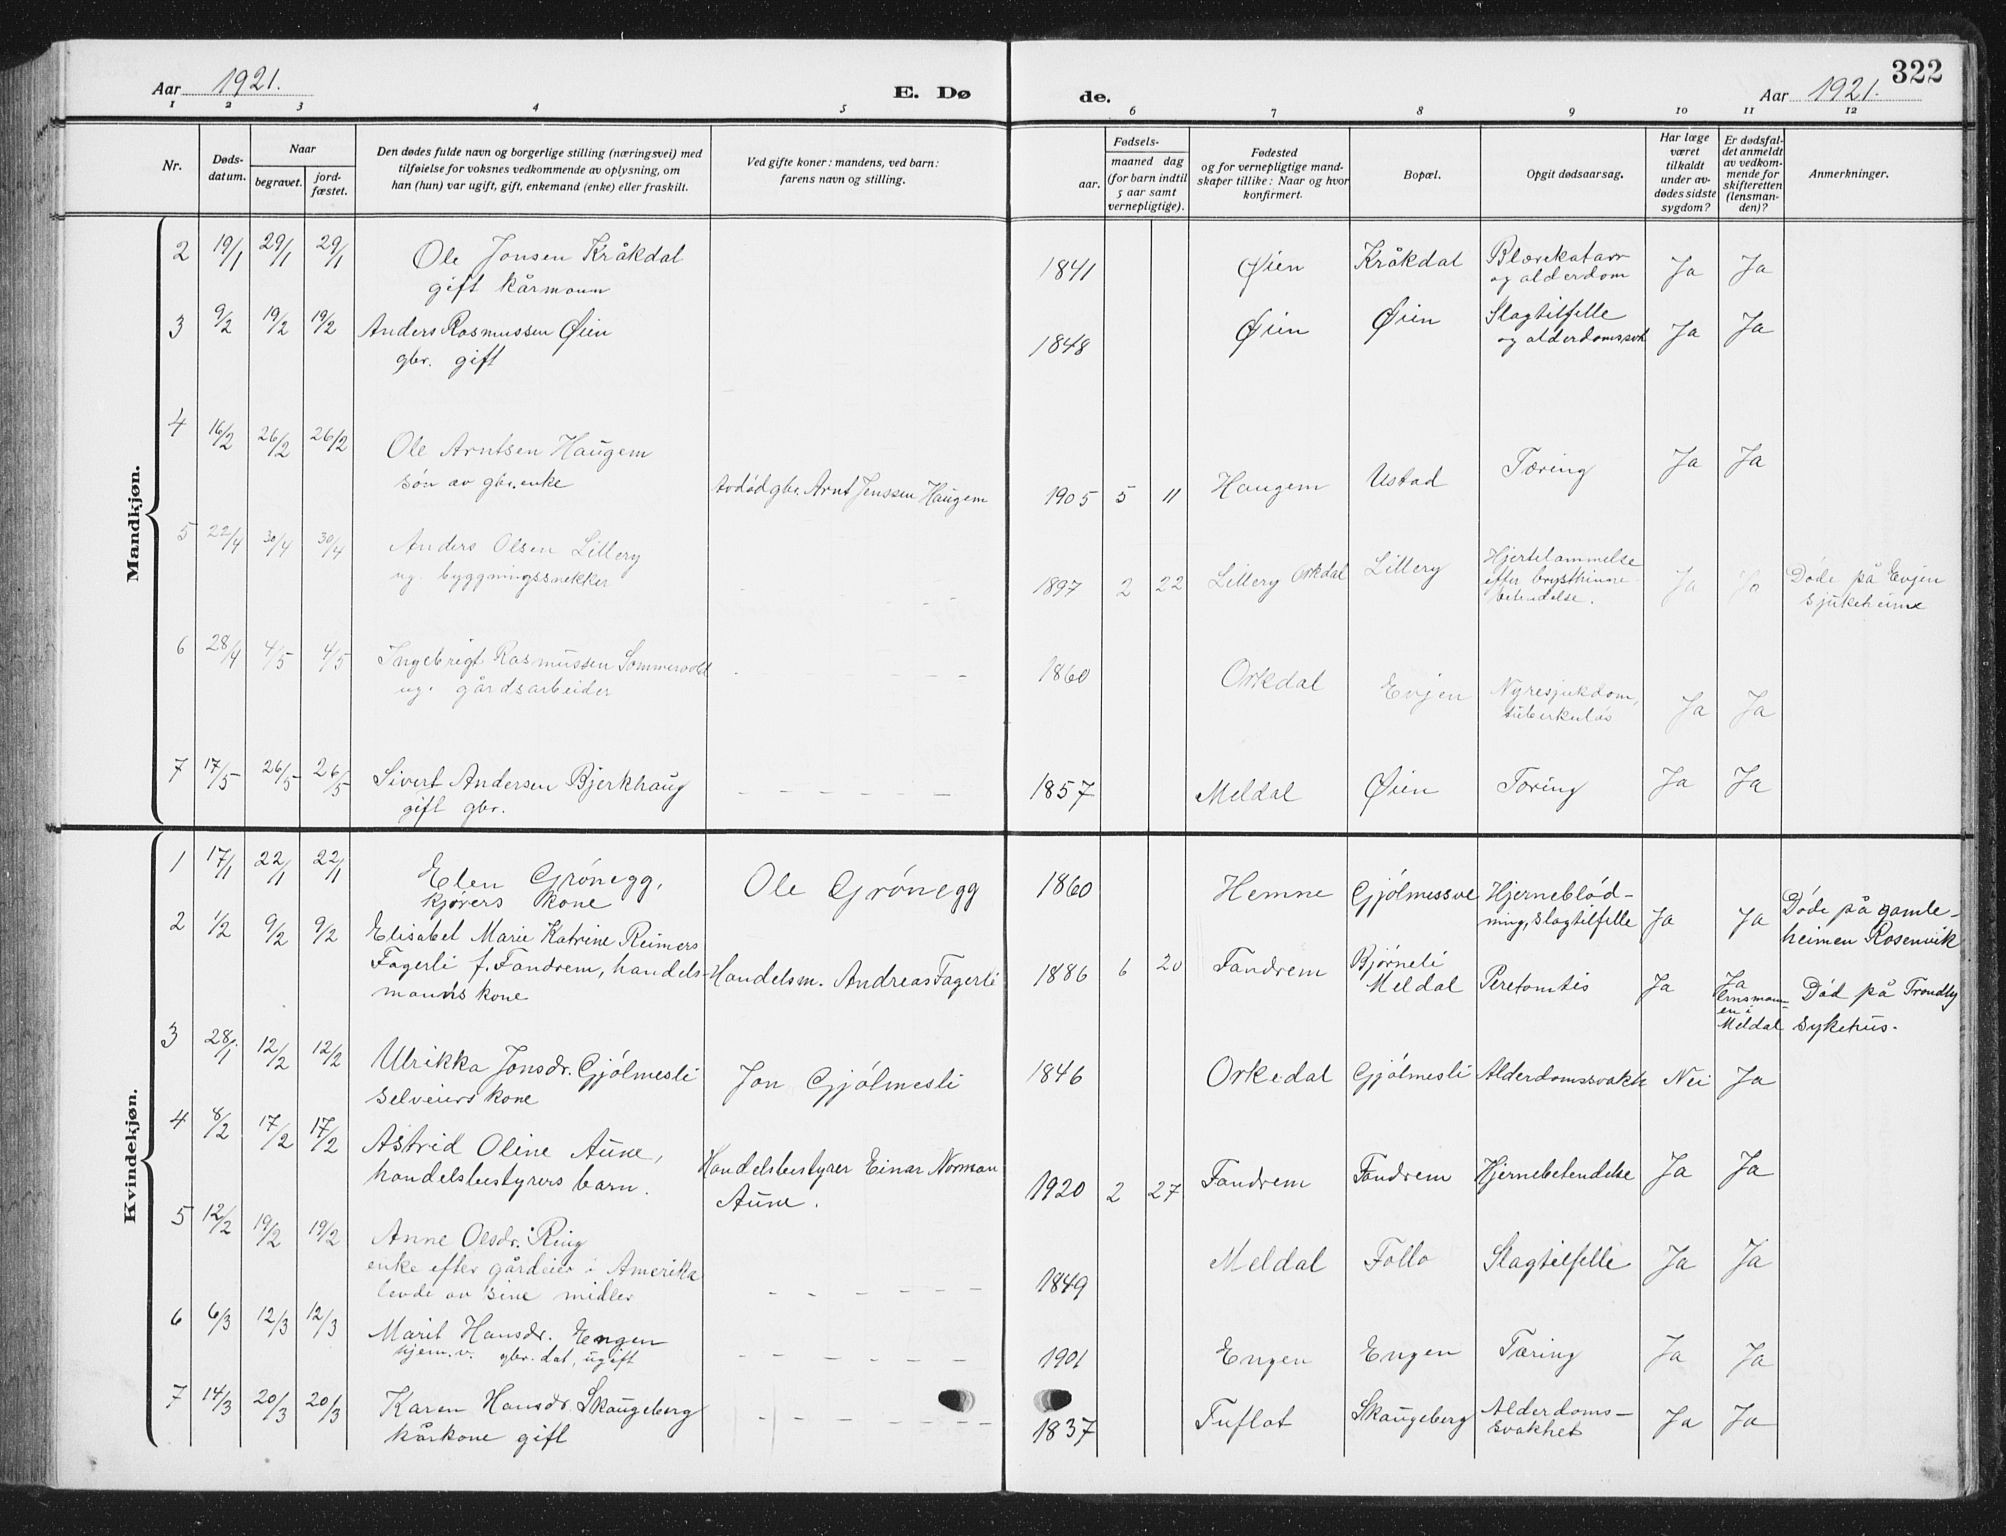 322
Aar 1921.
E. Dø
de.
Aar 1921.
1 2 3 4 5 6 7 8 9 10 11 12
Nr.
Døds-
datum.
Naar
begravet.
jord-
fæstet.
Den dødes fulde navn og borgerlige stilling (næringsvei) med
tilføielse for voksnes vedkommende av oplysning, om
han (hun) var ugift, gift, enkemand (enke) eller fraskilt.
Ved gifte koner: mandens, ved barn:
farens navn og stilling.
Fødsels-
aar.
maaned dag
(for barn indtil
5 aar samt
vernepligtige).
Fødested
og for vernepligtige mand-
skaper tillike: Naar og hvor
konfirmert.
Bopæl.
Opgit dødsaarsag.
Har læge
været
tilkaldt
under av-
dødes sidste
sygdom?
Er dødsfal-
det anmeldt
av vedkom-
mende for
skifteretten
(lensman-
den)?
Anmerkninger.
Mandkjøn.
2 19/1 29/1 29/1 Ole Jonsen Kråkdal 1841 Øien Kråkdal Blærekatarr Ja Ja
gift kårmann og alderdom
3 9/2 19/2 19/2 Anders Rasmussen Øien 1848 Øien Øien Slagtilfelle Ja Ja
gbr. gift og alderdomssvk
4 16/2 26/2 26/2 Ole Arntsen Haugem 1905 5 11 Haugem Ustad Tæring Ja Ja
søn av gbr.enke avdød gbr. Arnt Jenssen Haugem
5 22/4 30/4 30/4 Anders Olsen Lillery 1897 2 22 Lillery Orkdal Lillery Hjertelammelse Ja Ja Døde på Evjen
ug. byggningssnekker - - - efter brysthinne- sjukeheime
betendelse.
6 28/4 4/5 4/5 Ingebrigt Rasmussen Sommervold - - - 1860 Orkdal Evjen Nyresjukdom, Ja Ja
ug. gårdsarbeider tuberkuløs
7 17/5 26/5 26/5 Sivert Andersen Bjerkhaug - - - 1857 Meldal Øien Tæring Ja Ja
gift gbr.
Kvindekjøn.
1 17/1 22/1 22/1 Elen Grønegg, Ole Grønegg 1860 Hemne Gjølmessve Hjerneblød- Ja Ja Døde på gamle-
kjørers kone ning, slagtilfelle heimen Rosenvik
2 1/2 9/2 9/2 Elisabet Marie Katrine Reimers 1886 6 20 Fandrem Bjørneli Peretomtis Ja Ja Død på Trondly
Fagerli f. Fandrem, handels- Handelsm. Andreas Fagerli Meldal lensman- sykehus.
manns kone en i
Meldal
3 28/1 12/2 12/2 Ulrikka Jonsdr. Gjølmesli Jon Gjølmesli 1846 Orkedal Gjølmesli Alderdomssvakh Nei Ja
selveiers kone
4 8/2 17/2 17/2 Astrid Oline Aune, Handelsbestyrer Einar Norman 1920 2 27 Fandrem Fandrem Hjernebetendelse Ja Ja
handelsbestyrers barn. Aune.
5 12/2 19/2 19/2 Anne Olsdr. Ring - - - 1849 Meldal Follo Slagtilfelle Ja Ja
enke efter gårdeier i Amerika
levde av sine midler
6 6/3 12/3 12/3 Marit Hansdr. Engen - - - 1901 Engen Engen Tæring Ja Ja
hjem.v. gbr. dat, ugift
7 14/3 20/3 20/3 Karen Hansdr. Skaugeberg - - - 1837 Tuflat Skaugeberg Alderdoms- Ja Ja
kårkone gift svakhet